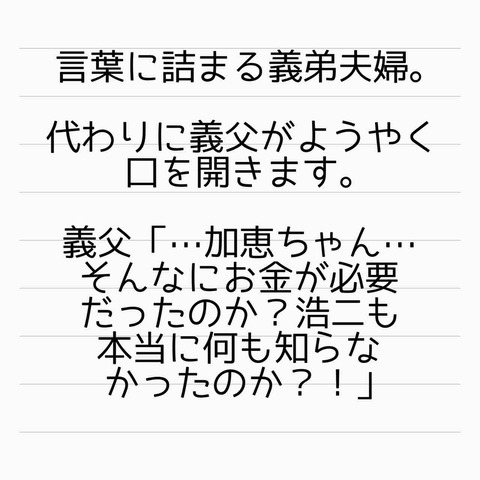 言葉に詰まる義弟夫婦。
代わりに義父がようやく
口を開きます。
義父「…加恵ちゃん…
そんなにお金が必要
だったのか？浩二も
本当に何も知らな
かったのか？！」